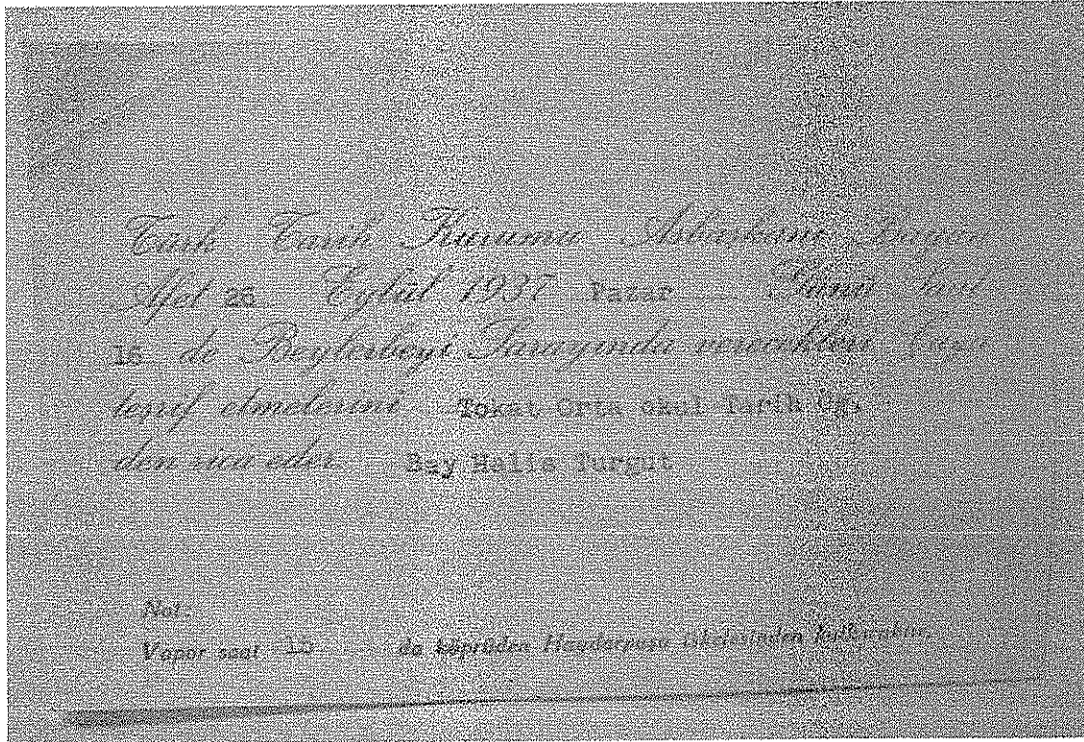 Türk Tarih Kurumu Asbaşkanı Bayan
Afet 26 Eylûl 1937 Pazar Günü saat
de Beylerbeyi Sarayında verecekleri
teşrif etmelerini Tokat Orta okul Tarih Öğ.
den rica eder Bay Halis Turgut
Not.
Vapur saat 15 de köprüden Haydarpaşa iskelesinden